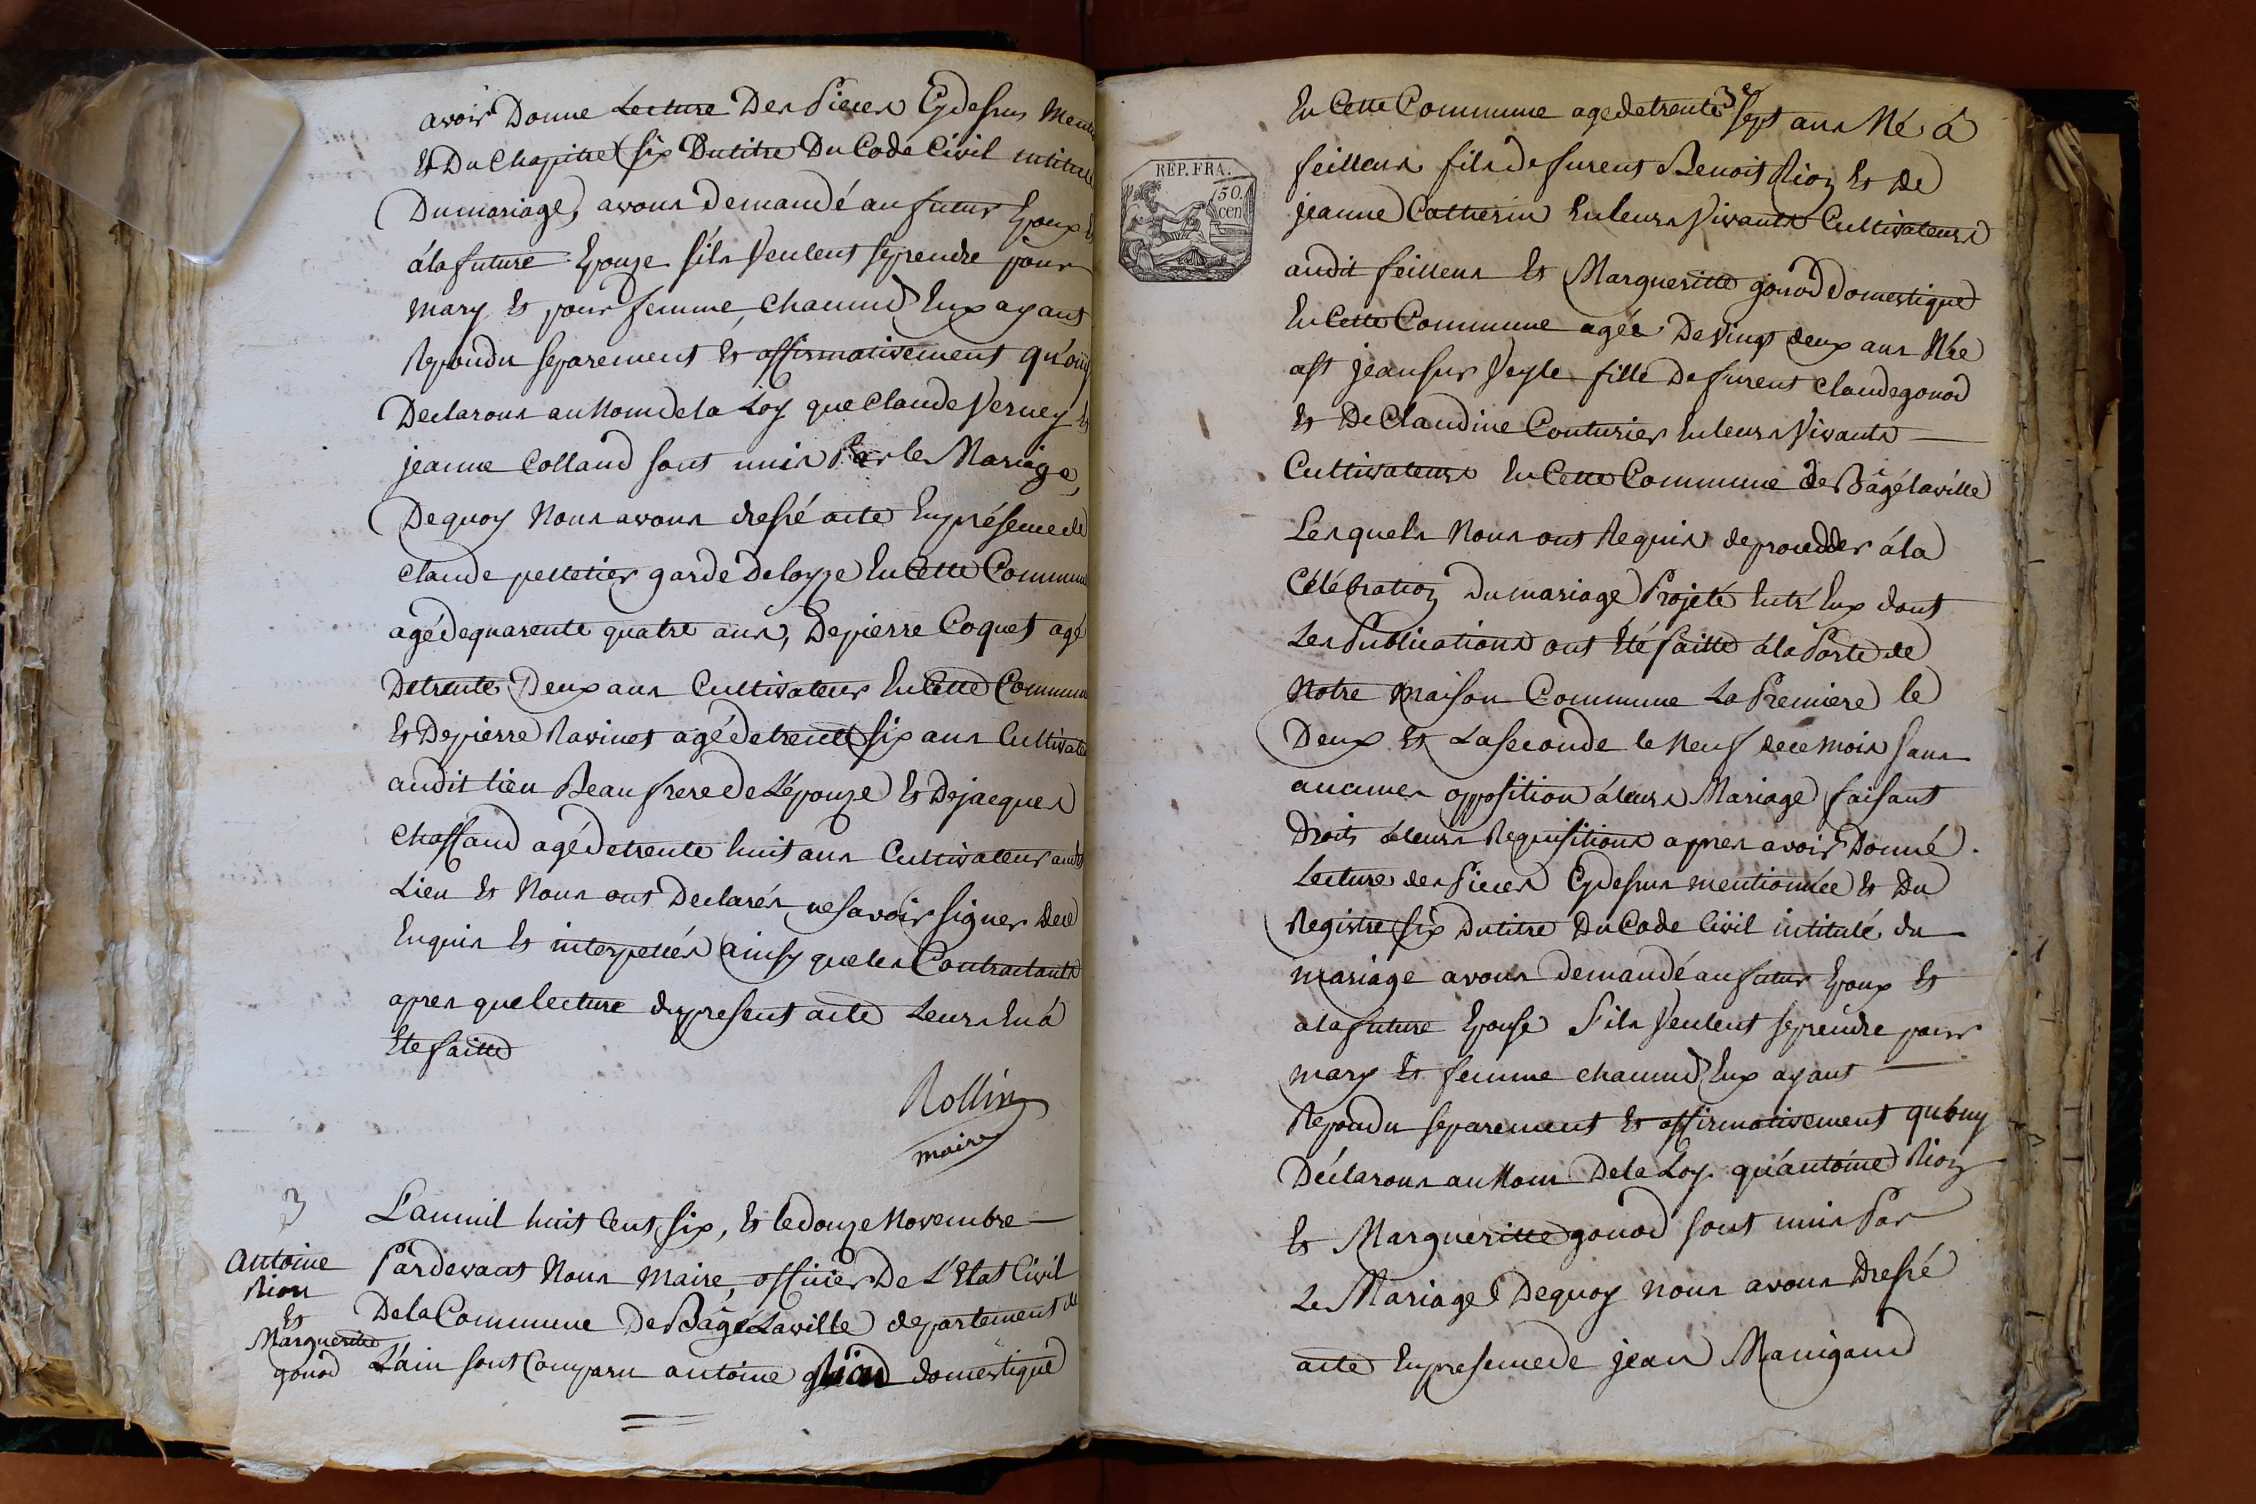 avoir Donne Lecture Des Pieces Cydessus Ment
Et Du Chapitre six Dutitre Du Code Civil intitulé
Dumariage, avons demandé aufutur Epoux Et
álafuture Epouze s'ils Veulent seprendre pour
mary Et pour femme, chacund'Eux ayant
Repondu separement Et affirmativement qu'ouy
Declarons auNomdela Loy que Claude Verney Et
jeanne Colland sont unis Par le Mariage,
Dequoy Nous avons dressé acte Enprésencede
Claude pelletier garde Deloyze EnCette Commune
agédequarente quatre ans, Depierre Coquet agé
Detrente Deux ans Cultivateur EnCette Commune
Et Depierre Ravinet agédetrente six ans Cultivate
audit lieu Beaufrere de L'épouze Et Dejacques
Chassaud agédetrente huit ans Cultivateur audit
Lieu Et Nous ont Declarés nesavoir signer dece
Enquis Et interpellés ainsy queles Contractants
apres quelecture dupresent acte Leurs Ená
Etéfaitte
Rollin
maire
3
Antoine
Rion
Et
Margueritte
gonod
L'anmil huit Cent six, Et ledouze Novembre
Pardevant Nous Maire, officier De L'Etat Civil
DelaCommune De Bâgé Laville departement de
L'ain sont Comparu antoine Rion domestique
REP. FRA.
50.
cen
En Cette Commune agedetrente sept ans Né á
feillens fils de furent Benoit Rion Et de
jeanne Catherin Enleurs Vivants Cultivateurs
audit feillens Et Margueritte gonod domestique
EnCette Commune agée DeVingt deux ans Née
ast jeansur Veyle fille Defurent Claudegonod
Et De Claudine Couturier Enleurs Vivants
Cultivateurs EnCette Commune de Bâgélaville
Lesquels Nous ont Requis deproceder ála
Célébration Dumariage Projeté Entr'Eux dont
Les Publications ont Etéfaitte álaPorte de
Notre Maison Commune La Premiere le
Deux Et Laseconde le Neuf decemois sans
aucunes opposition áleurs Mariage faisant
Droit áleurs Requisitions apres avoir Donné
Lecture des Pieces Cydessus mentionnée Et Du
Registre six Dutitre DuCode Civil intitulé du
mariage avons Demandé aufutur Epoux Et
alafuture Epouse S'ils Veulent seprendre pour
mary Et femme chacund'Eux ayant
Repondu separement Et affirmativement qu'ouy
Déclarons auNom Dela Loy qu'antoine Rion
Et Marguerittegonod sont unis Par
Le Mariage Dequoy nous avons Dressé
acte Enpresencede jean Manigand